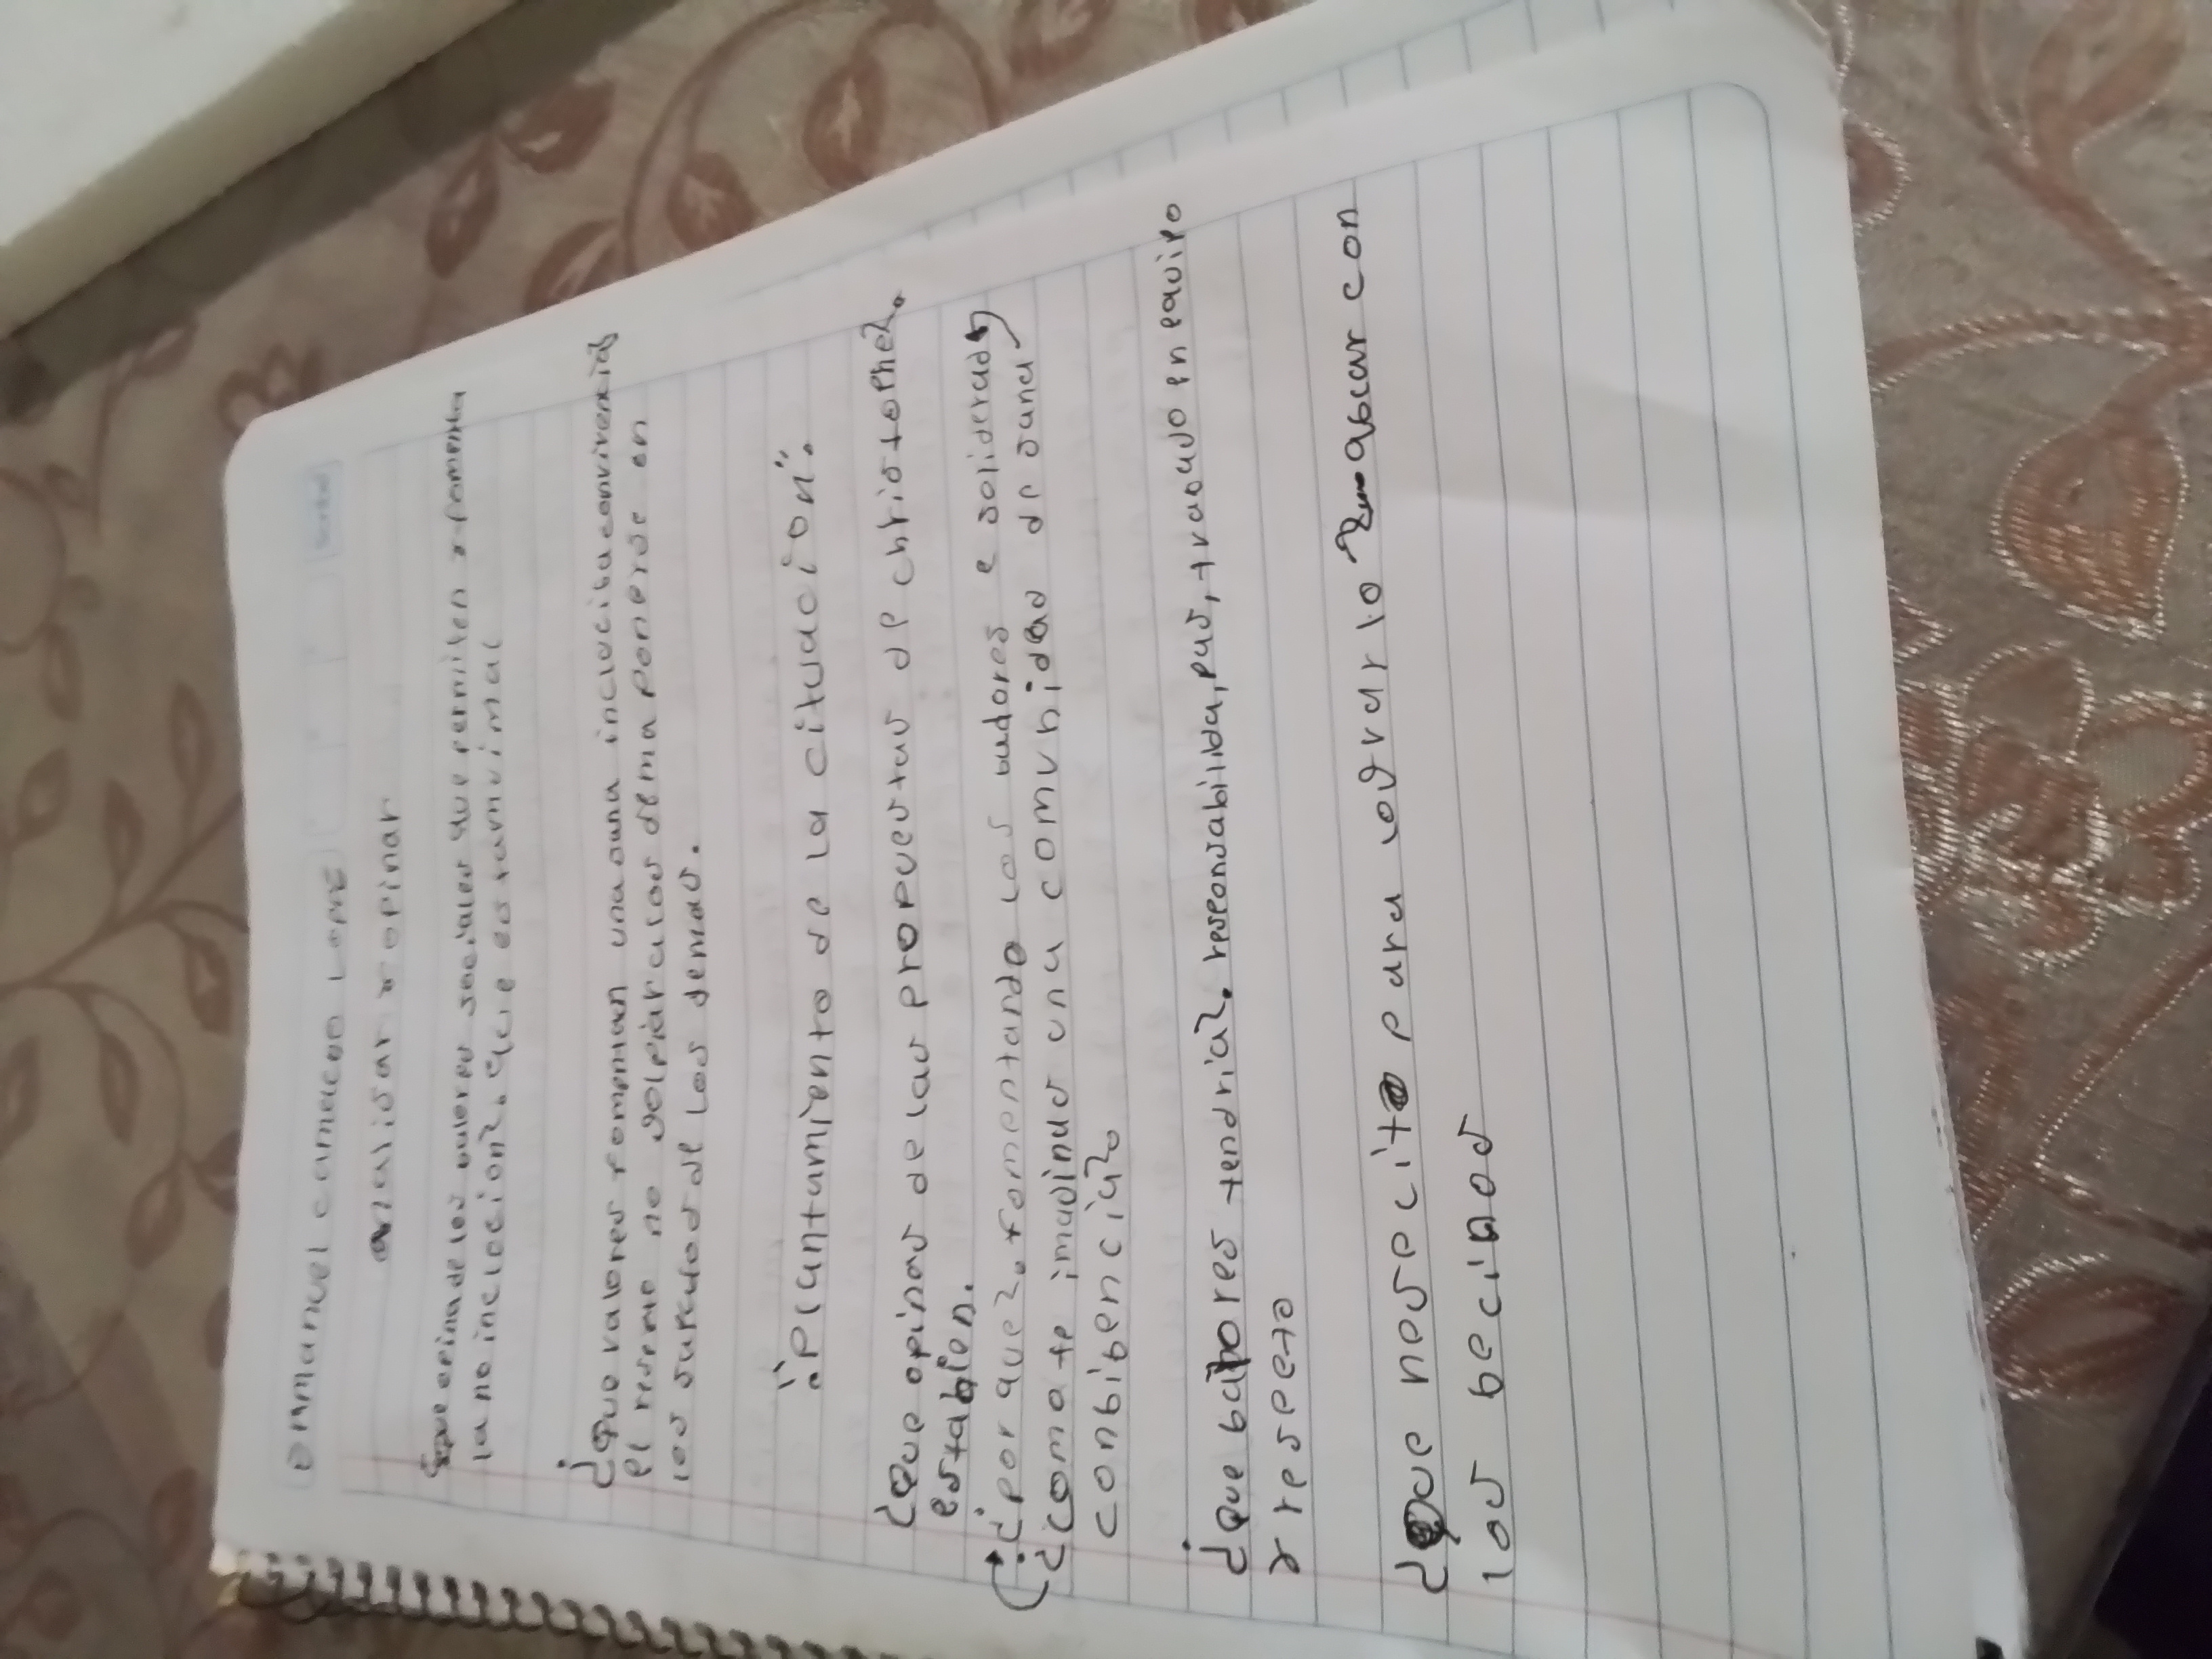 emmanuel camacho Lope
analisar y opinar
que opina de los valores sociales que permiten y fomenta
la no inclocion?. que es tan mui mal
¿que valores fomentan una sana inclucibaconvivencia?
el reseno no golpiar a los dema ponerse en
los sapatos de los demas.
"plantamiento de la cituacion".
¿que opinas de las propuestas de christophe?.
esta bien.
¿por que?. fomentando los badores e soliderad
¿como te imaginas una comunidad de sana
conbibencia?
¿que balores tendria?. reseonsabilida, pas, trabado en equipo
y resecto
¿que nesecito para lograrlo? ablar con
los becinos